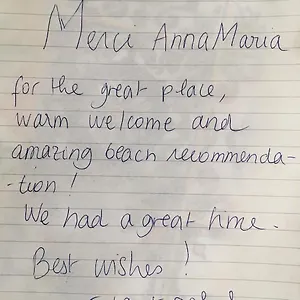 Merci AnnaMaria
for the great place,
warm welcome and
amazing beach recommenda-
-tion!
We had a great time.
Best wishes!